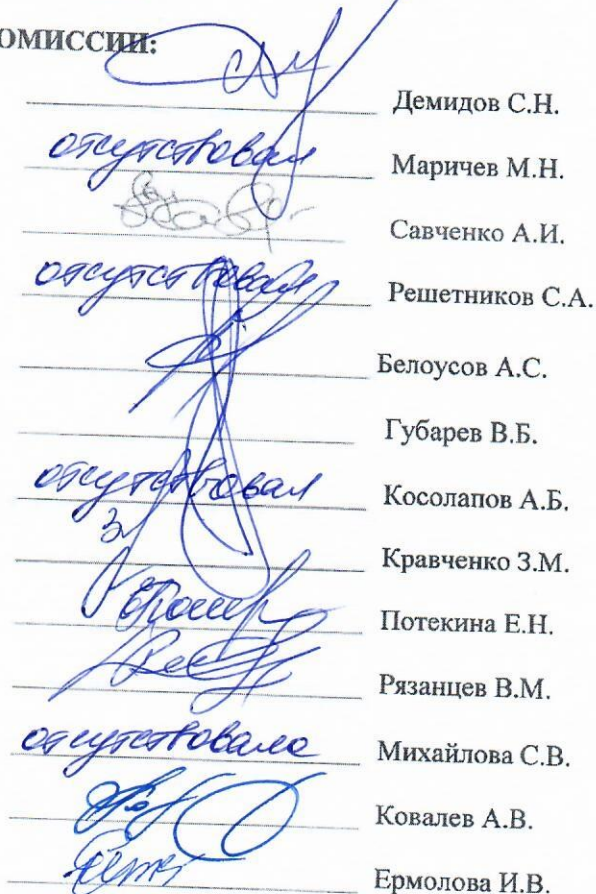 ОМИССИИ:
Демидов С.Н.
отсутствовал Маричев М.Н.
Савченко А.И.
отсутствовал Решетников С.А.
Белоусов А.С.
Губарев В.Б.
отсутствовал Косолапов А.Б.
Кравченко З.М.
Потекина Е.Н.
Рязанцев В.М.
отсутствовала Михайлова С.В.
Ковалев А.В.
Ермолова И.В.